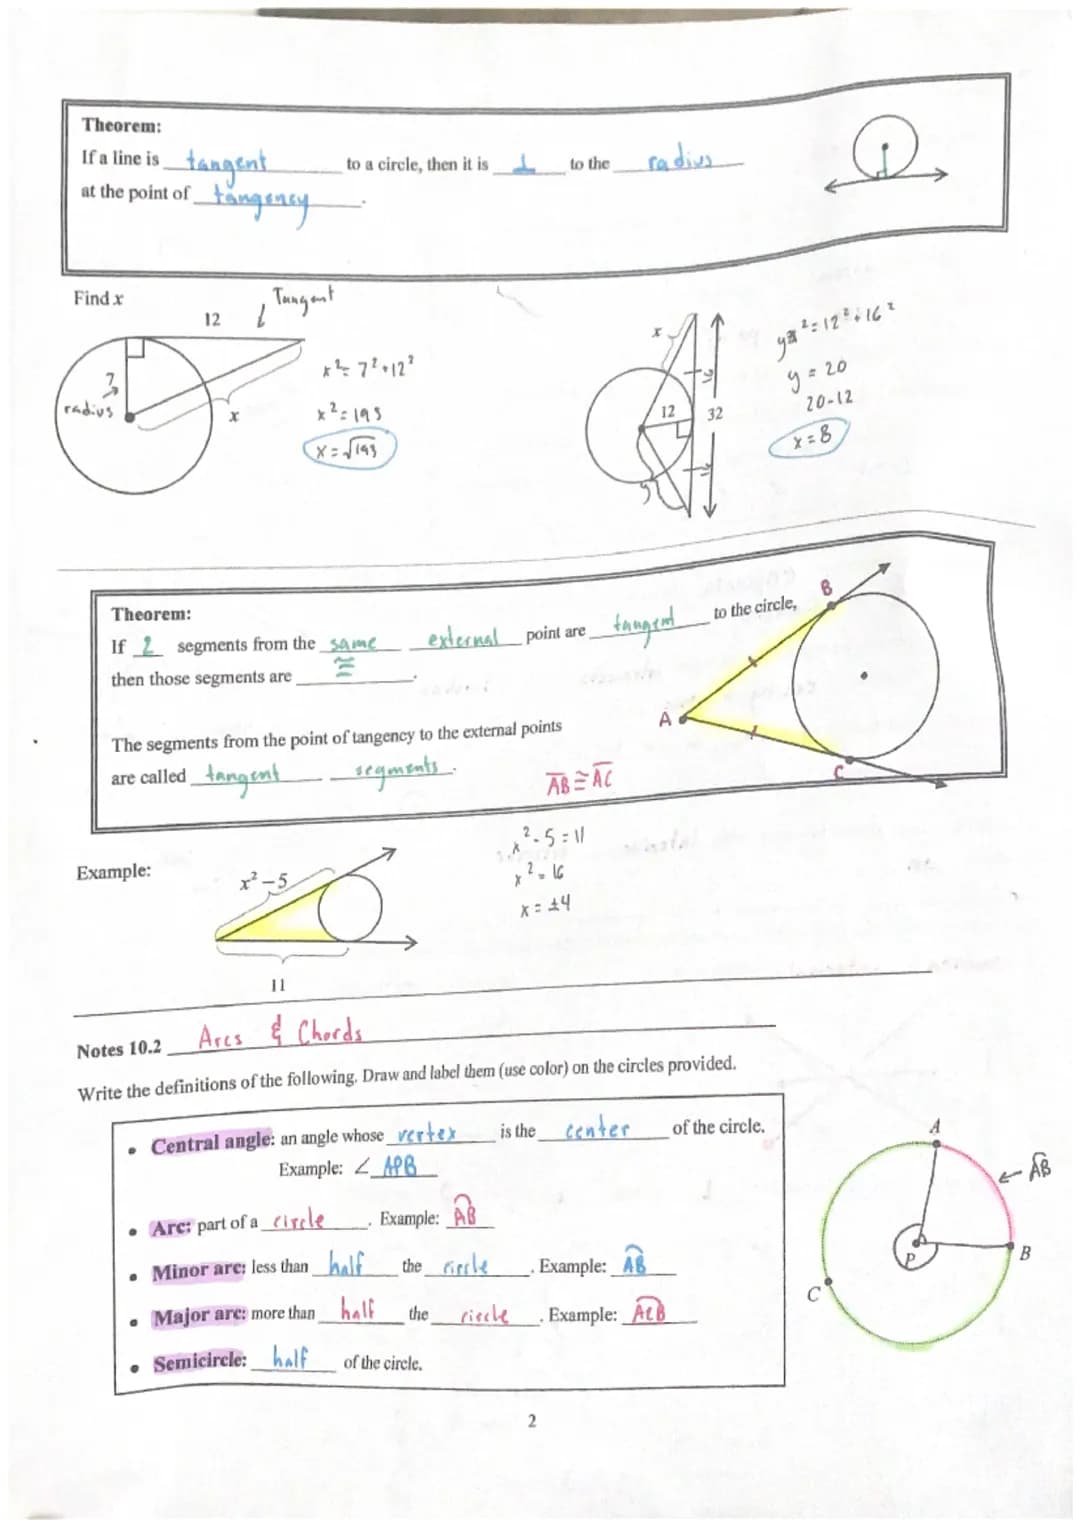 Theorem:
If a line is tangent to a circle, then it is ⊥ to the radius
at the point of tangency.
Find x
12
Tangent
7
radius
x
x² = 7² + 12²
x² = 193
x = √193
x
12
32
16
16
y
y² = 12² + 16²
y = 20
20-12
x = 8
Theorem:
If 2 segments from the same external point are tangent to the circle,
then those segments are ≅.
The segments from the point of tangency to the external points
are called tangent segments.
AB ≅ AC
A
B
C
Example:
x² – 5
11
x² - 5 = 11
x² = 16
x = ±4
Notes 10.2 Arcs & Chords
Write the definitions of the following. Draw and label them (use color) on the circles provided.
• Central angle: an angle whose vertex is the center of the circle.
Example: ∠ APB
• Arc: part of a circle. Example: AB
• Minor arc: less than half the circle. Example: AB
• Major arc: more than half the circle. Example: ACB
• Semicircle: half of the circle.
A
AB
B
P
C
2